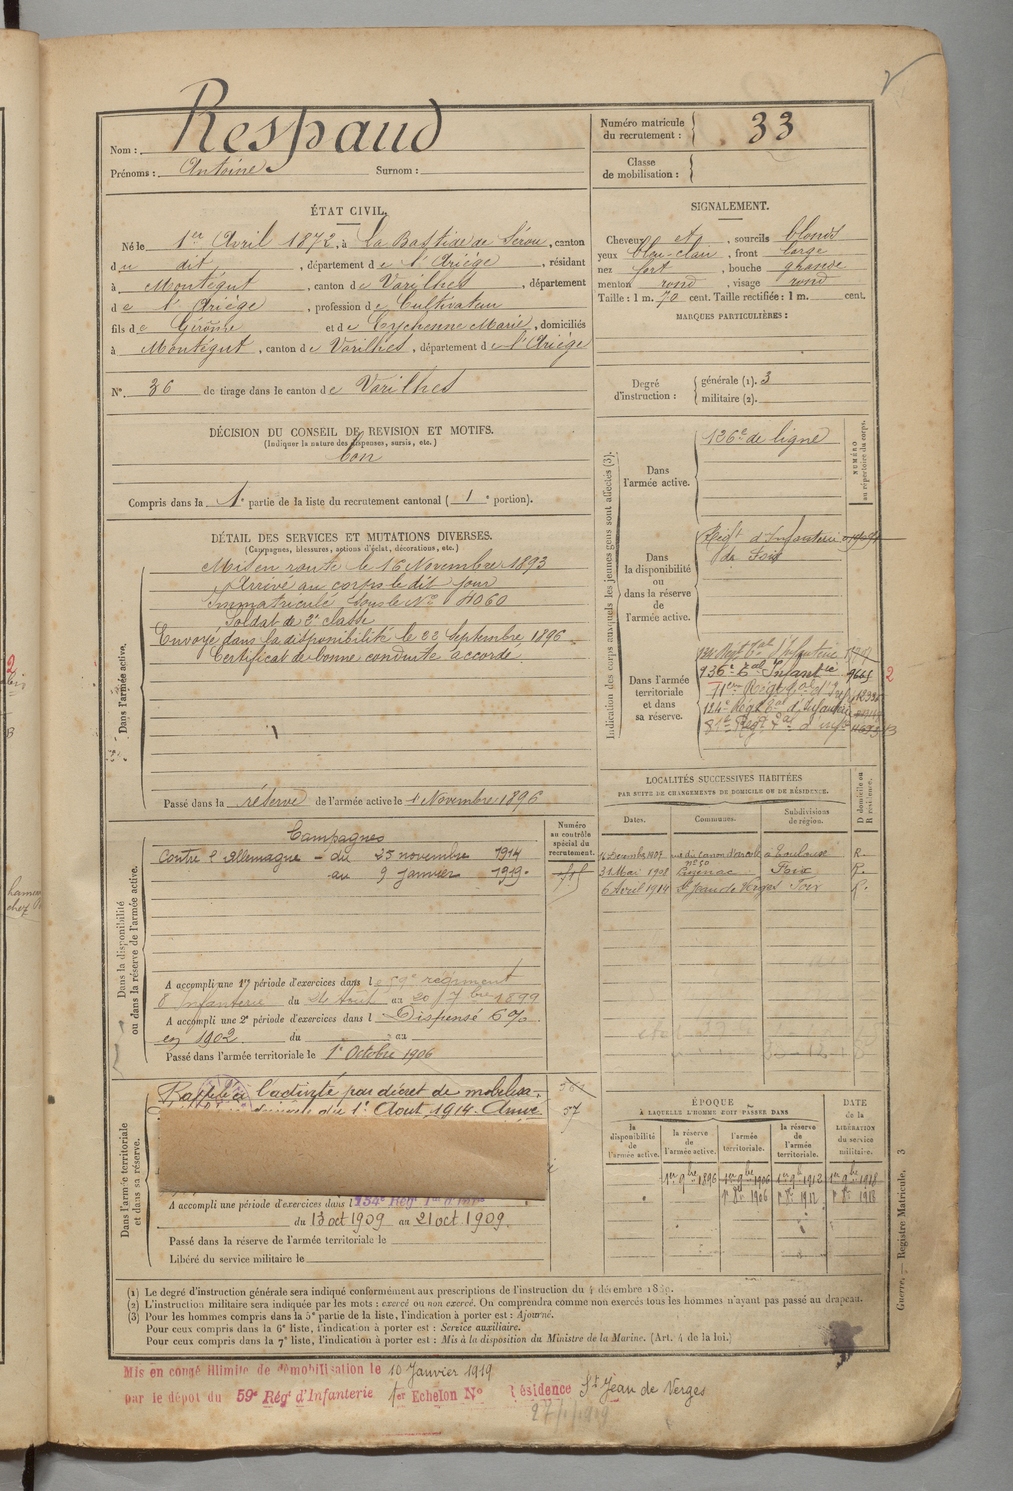 Nom : Respaud
Prénoms : Antoine Surnom :
Numéro matricule
du recrutement : 33
Classe
de mobilisation :
ÉTAT CIVIL.
Né le 1er Avril 1872, à La Bastide de Sérou, canton
du dit, département de l'Ariège, résidant
à Montégut, canton de Varilhes, département
de l'Ariège, profession de Cultivateur
fils de Gérôme et de Eychenne Marie, domiciliés
à Montégut, canton de Varilhes, département de l'Ariège
N° 36 de tirage dans le canton de Varilhes
SIGNALEMENT.
Cheveux et, sourcils blonds
yeux bleu-clair, front large
nez fort, bouche grande
menton rond, visage rond
Taille : 1 m. 70 cent. Taille rectifiée : 1 m. cent.
MARQUES PARTICULIÈRES :
Degré
d'instruction :
générale (1). 3
militaire (2).
DÉCISION DU CONSEIL DE REVISION ET MOTIFS.
(Indiquer la nature des dispenses, sursis, etc.)
bon
Compris dans la 1e partie de la liste du recrutement cantonal ( 1e portion).
DÉTAIL DES SERVICES ET MUTATIONS DIVERSES.
(Campagnes, blessures, actions d'éclat, décorations, etc.)
Dans l'armée active.
Mis en route le 16 Novembre 1893
Arrivé au corps le dit jour
Immatriculé sous le N° 4060
Soldat de 2e classe
Envoyé dans la disponibilité le 22 Septembre 1896
Certificat de bonne conduite accordé.
Passé dans la réserve de l'armée active le 1 Novembre 1896
Indication des corps auxquels les jeunes gens sont affectés (3).
NUMÉRO
au répertoire du corps.
Dans
l'armée active.
126e de ligne
Dans
la disponibilité
ou
dans la réserve
de
l'armée active.
Régt d'Infanterie
de Foix
Dans l'armée
territoriale
et dans
sa réserve.
136e Infantie 9661 2
124e Régt d'Infanterie
LOCALITÉS SUCCESSIVES HABITÉES
PAR SUITE DE CHANGEMENTS DE DOMICILE OU DE RÉSIDENCE.
D domicile ou
R résidence.
Dates. Communes. Subdivisions
de région.
14 Décembre 1907 rue du Canon d'Arcole n° 50 à Toulouse R.
31 Mai 1908 Foix R.
6 Avril 1914 St Jean de Verges Foix R.
Dans la disponibilité
ou dans la réserve de l'armée active.
Numéro
au contrôle
spécial du
recrutement.
Campagnes
Contre l'Allemagne - du 25 novembre 1914
au 9 janvier 1919.
A accompli une 1re période d'exercices dans le 59e régiment
d'Infanterie du 24 Août au 20 7bre 1899
A accompli une 2e période d'exercices dans l Dispensé 6%
en 1902 du au
Passé dans l'armée territoriale le 1er Octobre 1906
Dans l'armée territoriale
et dans sa réserve.
Rappelé à l'activité par décret de mobilisa-
du 1er Aout 1914. Arrivé
37
A accompli une période d'exercices dans l 134e Régt
du 13 oct 1909 au 21 oct 1909.
Passé dans la réserve de l'armée territoriale le
Libéré du service militaire le
ÉPOQUE
À LAQUELLE L'HOMME DOIT PASSER DANS
DATE
de la
LIBÉRATION
du service
militaire.
la
disponibilité
de
l'armée active.
la réserve
de
l'armée active.
l'armée
territoriale.
la réserve
de
l'armée
territoriale.
1er 9bre 1896 1er 9bre 1906 1er 9b 1912 1er 9bre 1918
1er 8bre 1906 1er 8bre 1912 1er 8bre 1918
(1) Le degré d'instruction générale sera indiqué conformément aux prescriptions de l'instruction du 4 décembre 1889.
(2) L'instruction militaire sera indiquée par les mots : exercé ou non exercé. On comprendra comme non exercés tous les hommes n'ayant pas passé au drapeau.
(3) Pour les hommes compris dans la 5e partie de la liste, l'indication à porter est : Ajourné.
Pour ceux compris dans la 6e liste, l'indication à porter est : Service auxiliaire.
Pour ceux compris dans la 7e liste, l'indication à porter est : Mis à la disposition du Ministre de la Marine. (Art. 4 de la loi.)
Guerre. — Registre Matricule. 3
Mis en congé illimité de démobilisation le 10 Janvier 1919
par le dépôt du 59e Régt d'Infanterie 1er Echelon N° Résidence St Jean de Verges